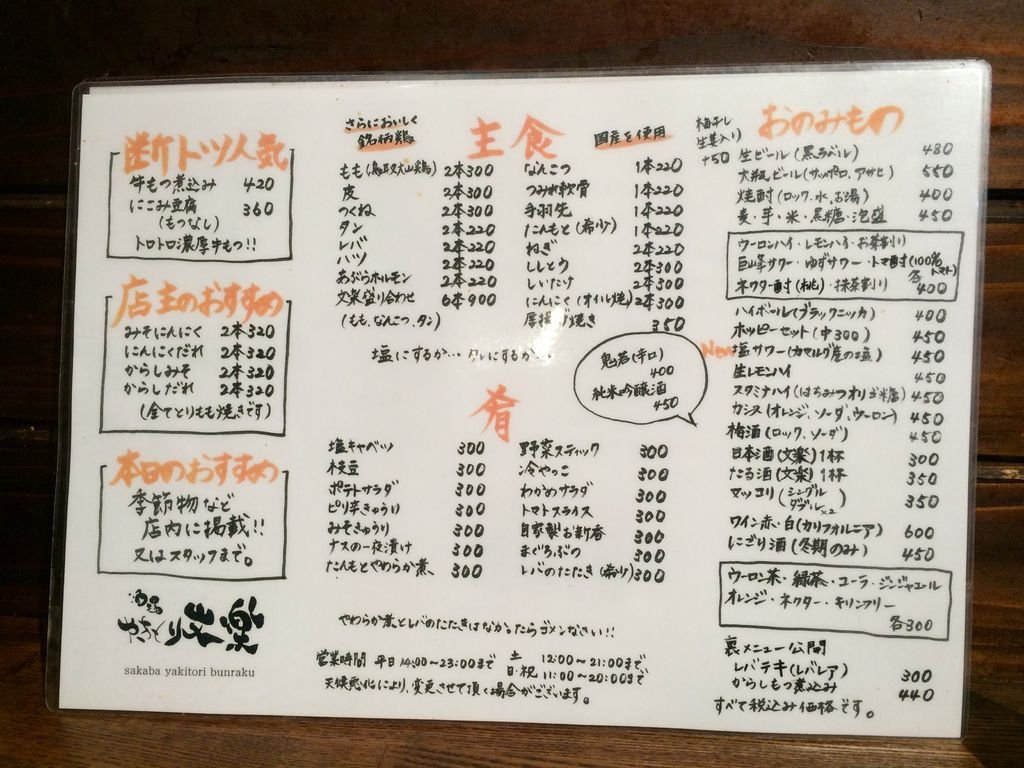 断トツ人気
牛もつ煮込み 420
にこみ豆腐 360
(もつなし)
トロトロ濃厚牛もつ!!
店主のおすすめ
みそにんにく 2本320
にんにくだれ 2本320
からしみそ 2本320
からしだれ 2本320
(全てとりもも焼きです)
本日のおすすめ
季節物など
店内に掲載!!
又はスタッフまで。
酒場
やきとり文楽
sakaba yakitori bunraku
さらにおいしく
銘柄鶏
主食
国産を使用
もも(鳥取大山鶏) 2本300
皮 2本300
つくね 2本300
タン 2本220
レバ 2本220
ハツ 2本220
あぶらホルモン 2本220
文楽盛り合わせ 6本900
(もも、なんこつ、タン)
なんこつ 1本220
つみれ軟骨 1本220
手羽先 1本220
たんもと(希少) 1本220
ねぎ 2本220
ししとう 2本300
しいたけ 2本300
にんにく(オイル焼) 2本300
厚揚げ焼き 350
塩にするか… タレにするか…
鬼若(辛口)
400
純米吟醸酒
450
肴
塩キャベツ 300
枝豆 300
ポテトサラダ 300
ピリ辛きゅうり 300
みそきゅうり 300
ナスの一夜漬け 300
たんもとやわらか煮 300
野菜スティック 300
冷やっこ 300
わかめサラダ 300
トマトスライス 300
自家製お新香 300
まぐろぶつ 300
レバのたたき(希少) 300
やわらか煮とレバのたたきはなかったらゴメンなさい!!
営業時間 平日 14:00〜23:00まで 土 12:00〜21:00まで
日・祝 11:00〜20:00まで
天候悪化により、変更させて頂く場合がございます。
おのみもの
梅干し
生姜入り
+50
生ビール(黒ラベル) 480
大瓶ビール(サッポロ、アサヒ) 550
焼酎(ロック、水、お湯) 400
麦・芋・米・黒糖・泡盛 450
ウーロンハイ・レモンハイ・お茶割り
巨峰サワー・ゆずサワー・トマ酎(100%トマト)
ネクター酎(桃)・抹茶割り 各400
ハイボール(ブラックニッカ) 400
ホッピーセット(中300) 450
New 塩サワー(カマルグ産の塩) 450
生レモンハイ 450
スタミナハイ(はちみつオリゴ糖店) 450
カシス(オレンジ、ソーダ、ウーロン) 450
梅酒(ロック、ソーダ) 450
日本酒(文楽)1杯 300
たる酒(文楽)1杯 350
マッコリ(シングル ダブル×2) 350
ワイン赤・白(カリフォルニア) 600
にごり酒(冬期のみ) 450
ウーロン茶・緑茶・コーラ・ジンジャエール
オレンジ・ネクター・キリンフリー
各300
裏メニュー公開
レバテキ(レバレア) 300
からしもつ煮込み 440
すべて税込み価格です。